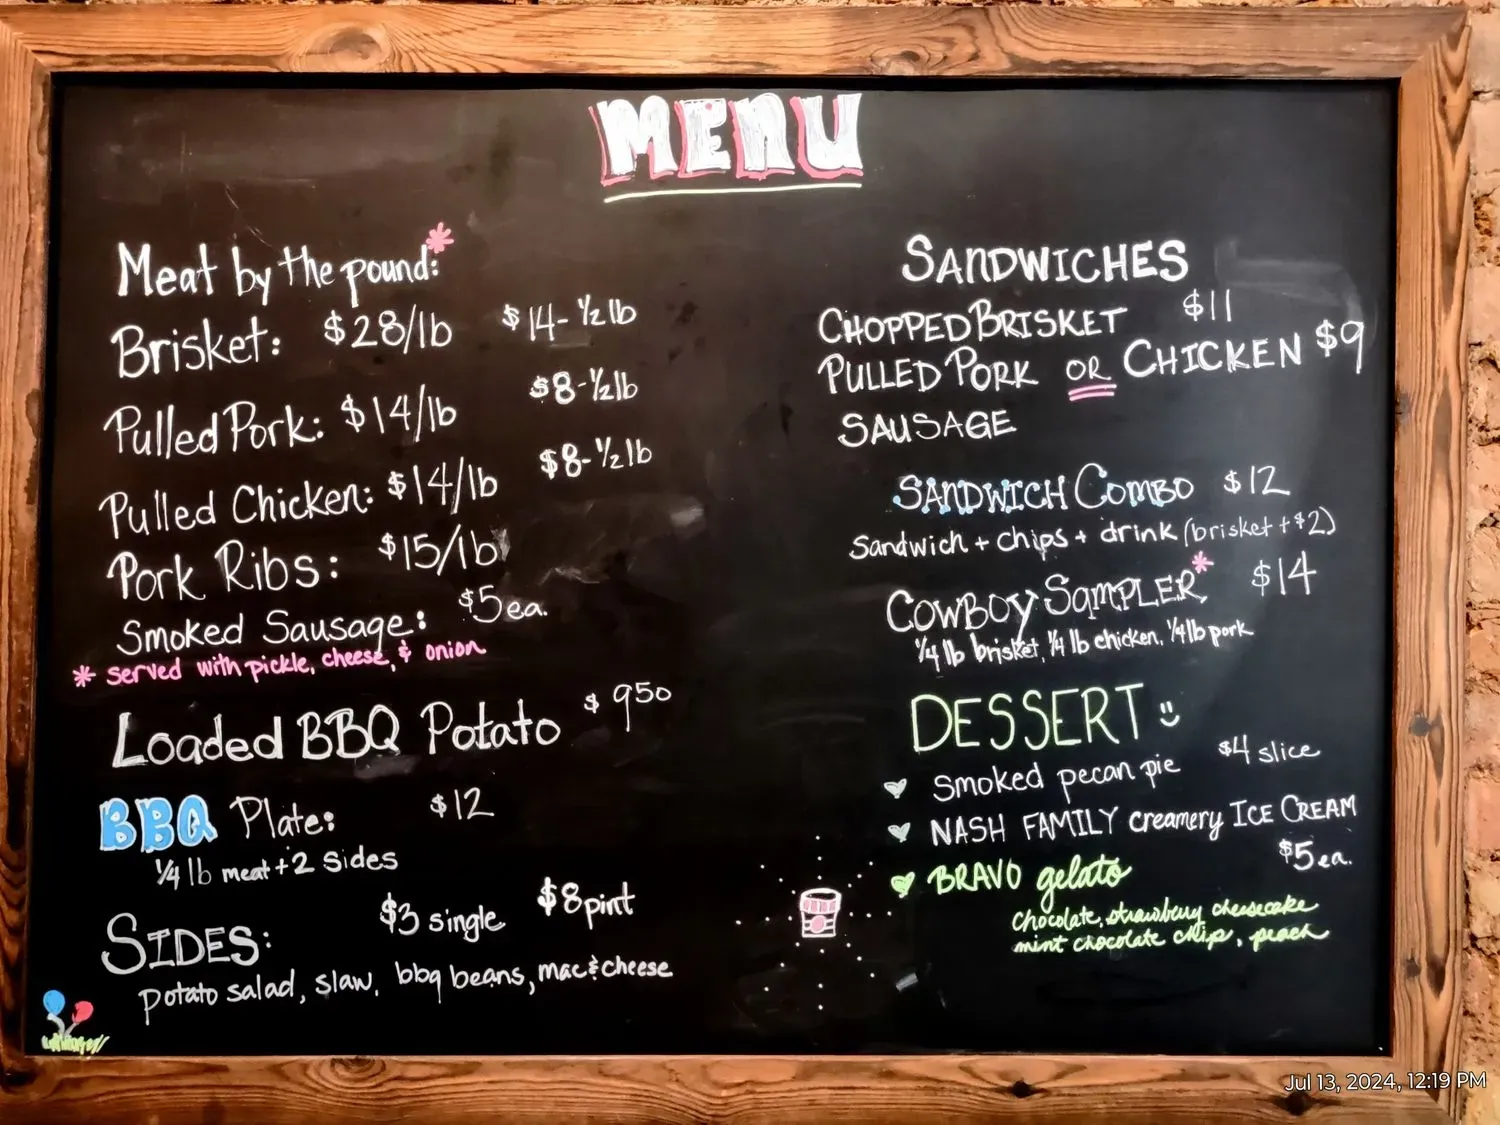 MENU
Meat by the pound:*
Brisket: $28/lb $14-½lb
Pulled Pork: $14/lb $8-½lb
Pulled Chicken: $14/lb $8-½lb
Pork Ribs: $15/lb
Smoked Sausage: $5ea.
* served with pickle, cheese, & onion
Loaded BBQ Potato $9⁵⁰
BBQ Plate: $12
¼ lb meat + 2 sides
SIDES: $3 single $8pint
potato salad, slaw, bbq beans, mac & cheese
SANDWICHES
CHOPPED BRISKET $11
PULLED PORK OR CHICKEN $9
SAUSAGE
SANDWICH COMBO $12
Sandwich + chips + drink (brisket +$2)
COWBOY SAMPLER* $14
¼ lb brisket, ¼ lb chicken, ¼ lb pork
DESSERT
Smoked pecan pie $4 slice
NASH FAMILY creamery ICE CREAM
$5ea.
BRAVO gelato
chocolate, strawberry cheesecake
mint chocolate chip, peach
Jul 13, 2024, 12:19 PM